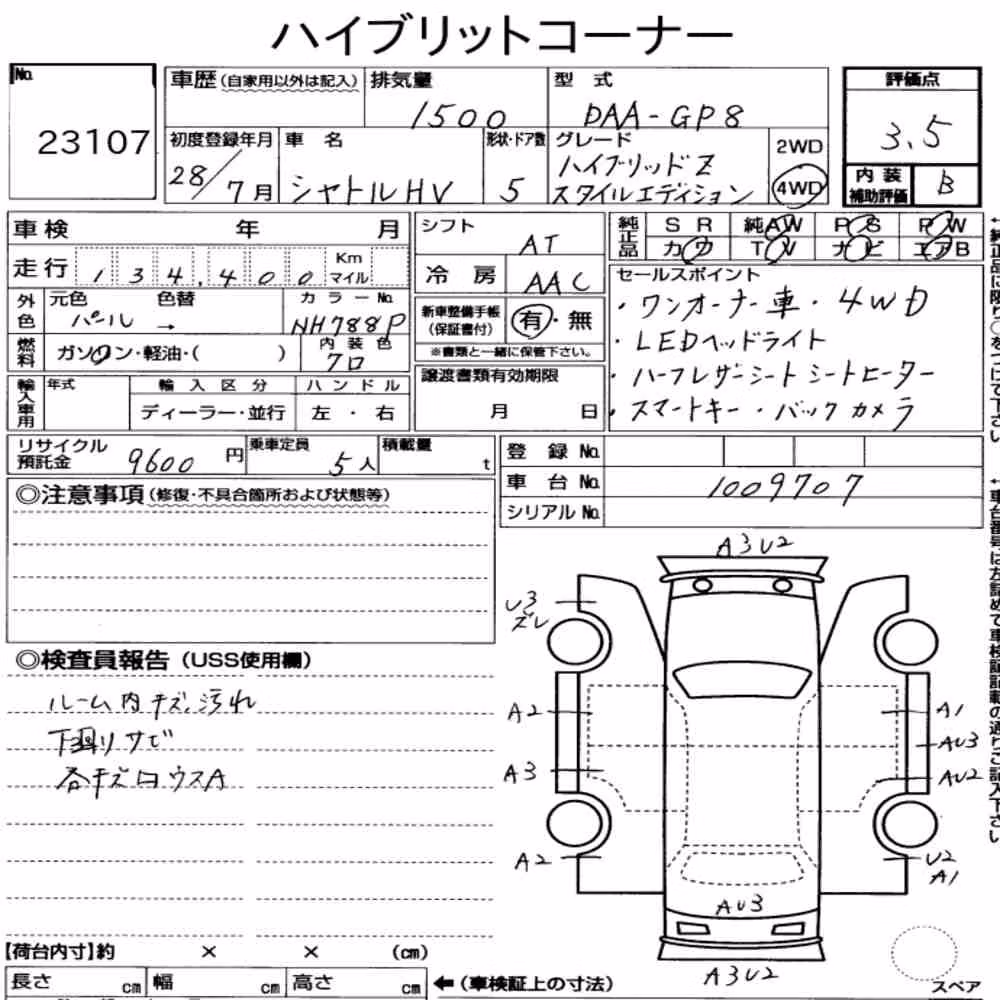 ハイブリットコーナー
No. 23107
車歴(自家用以外は記入)
排気量 1500
型式 DAA-GP8
評価点 3.5
初度登録年月 28/7月
車名 シャトルHV
形状・ドア数 5
グレード ハイブリッドZ
スタイルエディション
2WD
4WD
内装
補助評価 B
車検 年 月
走行 134,400 Km
マイル
外色 元色 パール → 色替
カラーNo. NH788P
燃料 ガソリン・軽油・( )
内装色 クロ
輸入車用 年式 輸入区分 ハンドル
ディーラー・並行 左・右
シフト AT
冷房 AAC
新車整備手帳
(保証書付) 有・無
※書類と一緒に保管下さい。
譲渡書類有効期限
月 日
純正品 SR 純AW PS PW
カワ TV ナビ エアB
セールスポイント
・ワンオーナー車・4WD
・LEDヘッドライト
・ハーフレザーシート シートヒーター
・スマートキー・バックカメラ
リサイクル
預託金 9600円
乗車定員 5人
積載量 t
登録No.
車台No. 1009707
シリアルNo.
◎注意事項(修復・不具合箇所および状態等)
◎検査員報告(USS使用欄)
ルーム内キズ、汚れ
下回りサビ
各キズ凹ウスA
A3U2
U3
ズレ
A2
A1
AU3
A3
AU2
A2
U2
A1
AU3
A3U2
スペア
【荷台内寸】約 × × (cm)
長さ cm 幅 cm 高さ cm
←(車検証上の寸法)